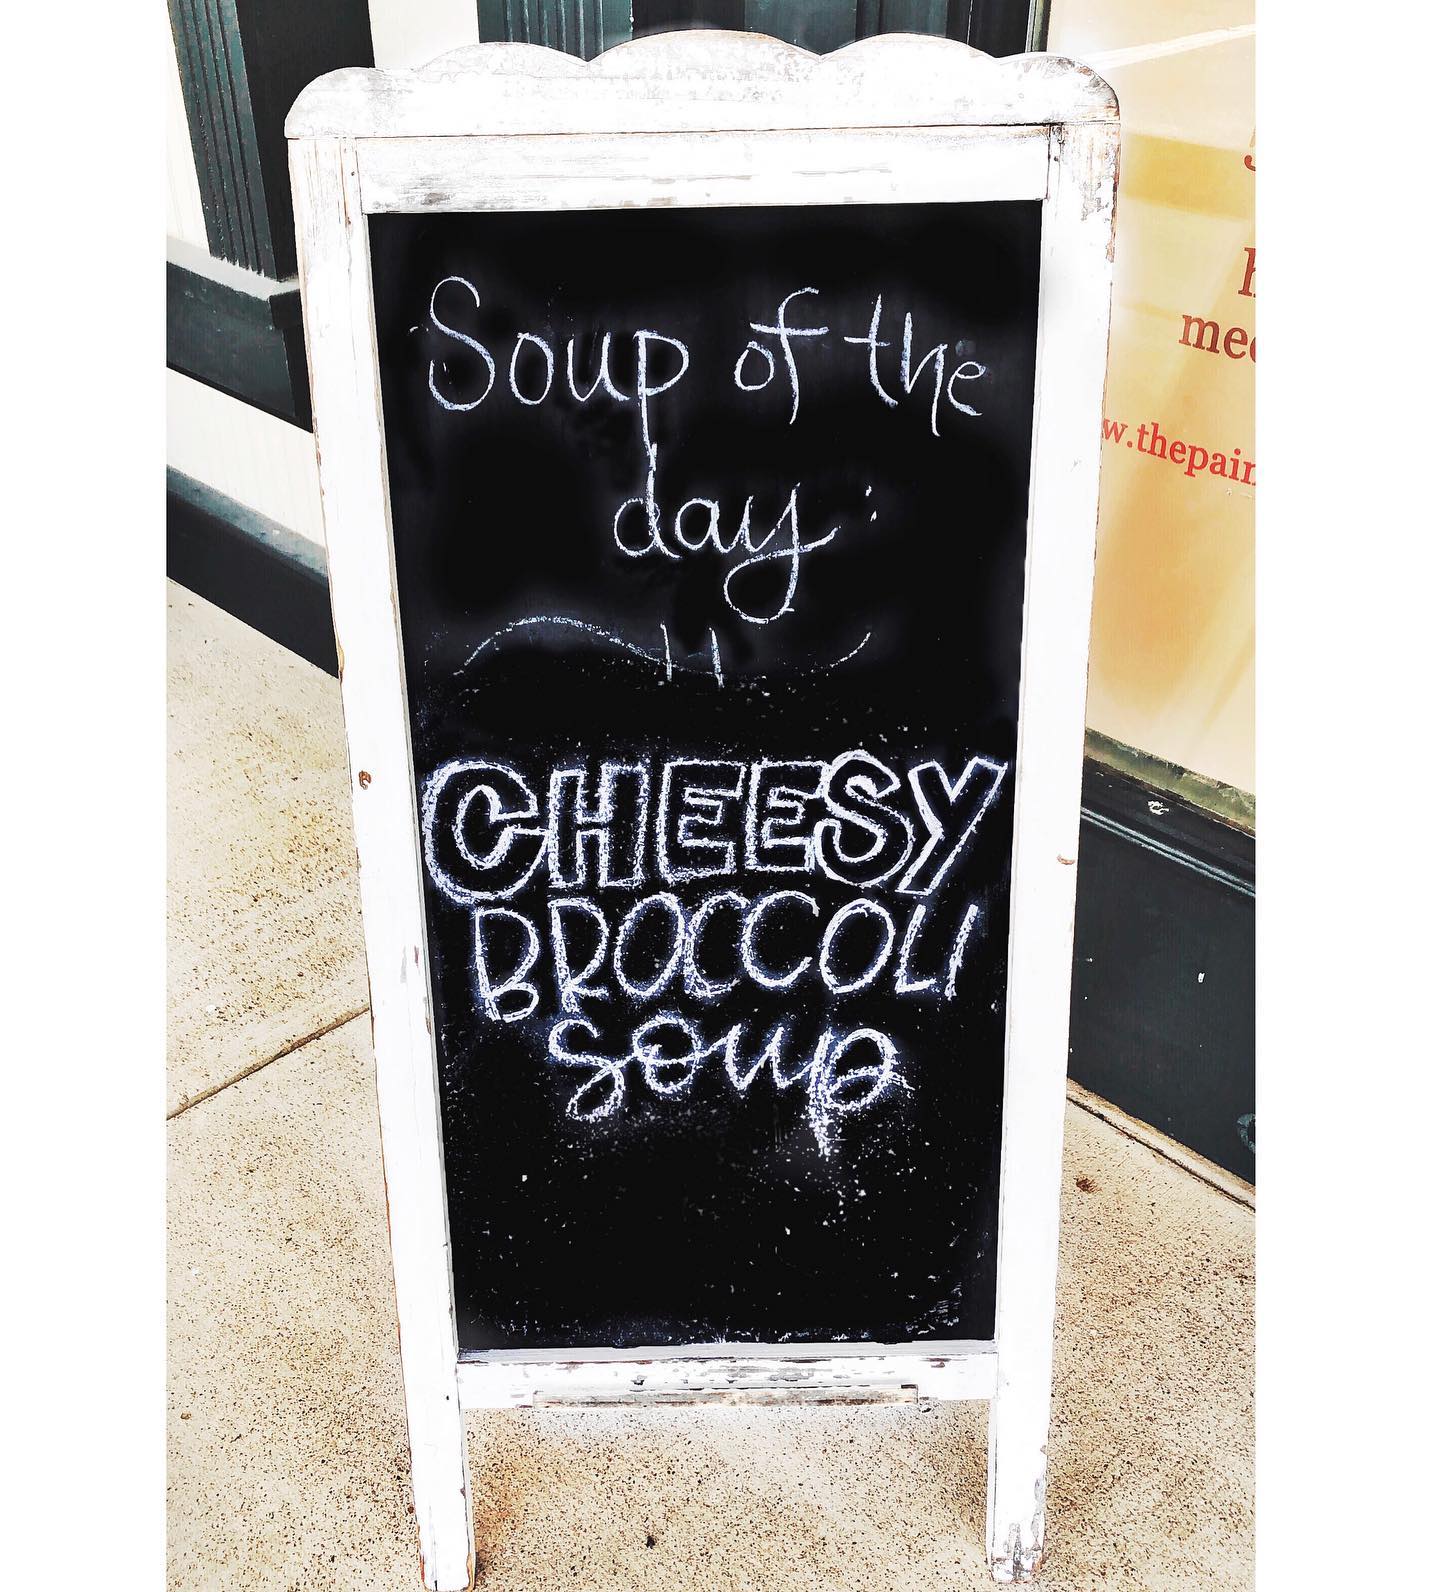 Soup of the
day:
CHEESY
BROCCOLI
soup
mee
w.thepain